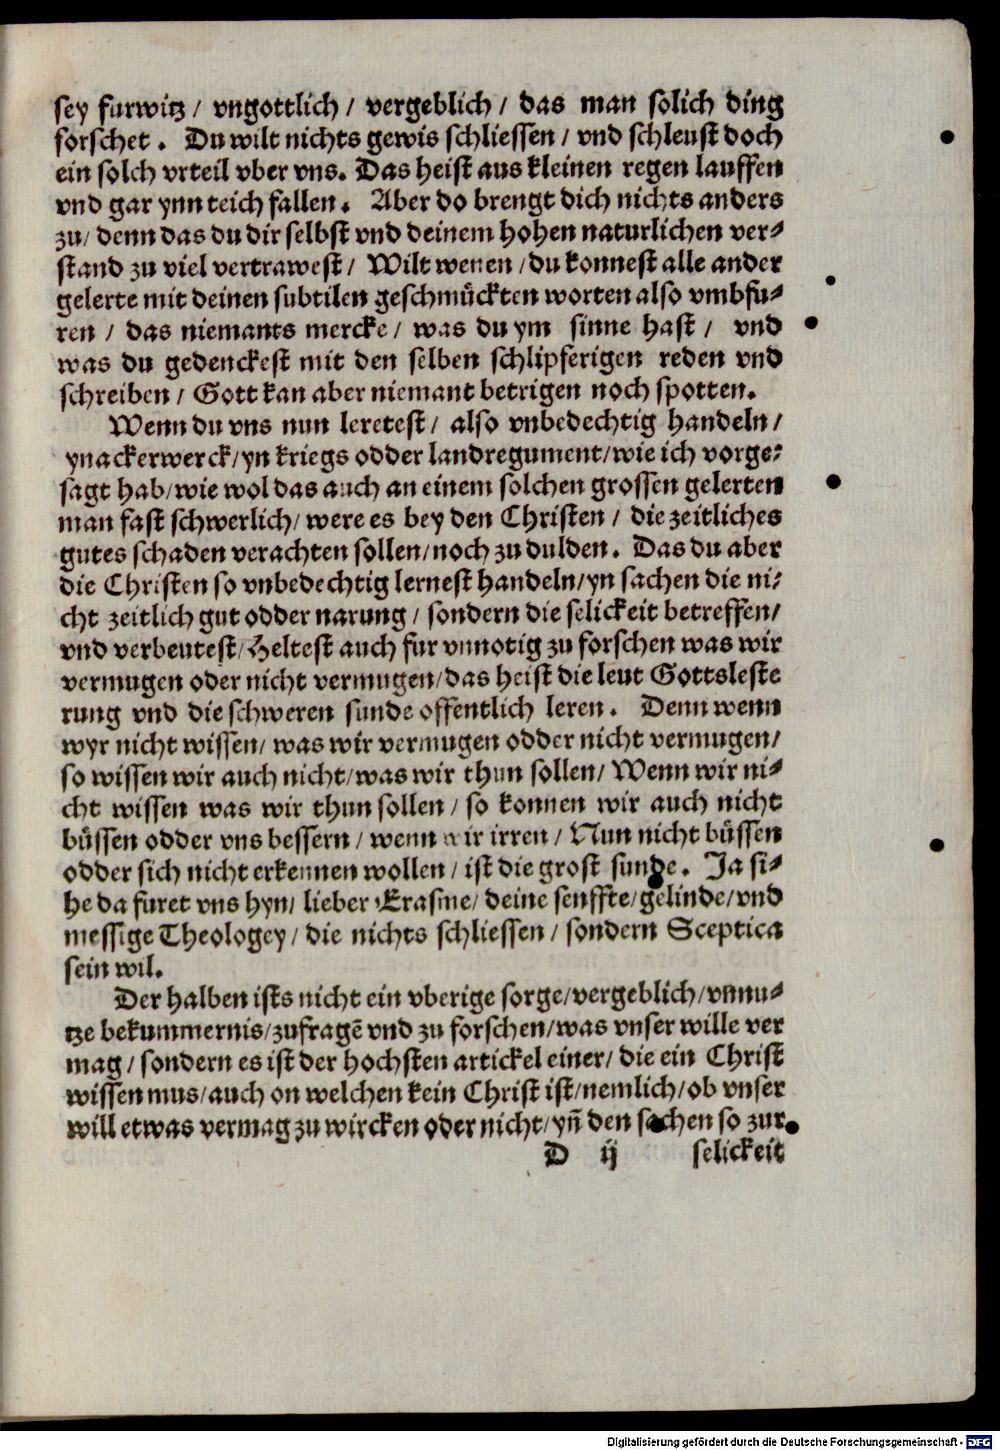 sey furwitz / vngottlich / vergeblich / das man solich ding
forschet. Du wilt nichts gewis schliessen / vnd schleust doch
ein solch vrteil vber vns. Das heist aus kleinen regen lauffen
vnd gar ynn teich fallen. Aber do brengt dich nichts anders
zu / denn das du dir selbst vnd deinem hohen naturlichen ver-
stand zu viel vertrawest / Wilt wenen / du konnest alle ander
gelerte mit deinen subtilen geschmückten worten also vmbfu-
ren / das niemants mercke / was du ym sinne hast / vnd
was du gedenckest mit den selben schlipferigen reden vnd
schreiben / Gott kan aber niemant betrigen noch spotten.
Wenn du vns nun leretest / also vnbedechtig handeln /
ynackerwerck / yn kriegs odder landregument / wie ich vorge-
sagt hab / wie wol das auch an einem solchen grossen gelerten
man fast schwerlich / were es bey den Christen / die zeitliches
gutes schaden verachten sollen / noch zu dulden. Das du aber
die Christen so vnbedechtig lernest handeln / yn sachen die ni-
cht zeitlich gut odder narung / sondern die selickeit betreffen /
vnd verbeutest / Heltest auch fur vnnotig zu forschen was wir
vermugen oder nicht vermugen / das heist die leut Gottsleste
rung vnd die schweren sunde offentlich leren. Denn wenn
wyr nicht wissen / was wir vermugen odder nicht vermugen /
so wissen wir auch nicht / was wir thun sollen / Wenn wir ni-
cht wissen was wir thun sollen / so konnen wir auch nicht
büssen odder vns bessern / wenn wir irren / Nun nicht büssen
odder sich nicht erkennen wollen / ist die grost sunde. Ja si-
he da furet vns hyn / lieber Erasme / deine senffte / gelinde / vnd
messige Theologey / die nichts schliessen / sondern Sceptica
sein wil.
Der halben ists nicht ein vberige sorge / vergeblich / vnnu-
tze bekummernis / zufragē vnd zu forschen / was vnser wille ver
mag / sondern es ist der hochsten artickel einer / die ein Christ
wissen mus / auch on welchen kein Christ ist / nemlich / ob vnser
will etwas vermag zu wircken oder nicht / yn̄ den sachen so zur
D ij selickeit
Digitalisierung gefördert durch die Deutsche Forschungsgemeinschaft - DFG